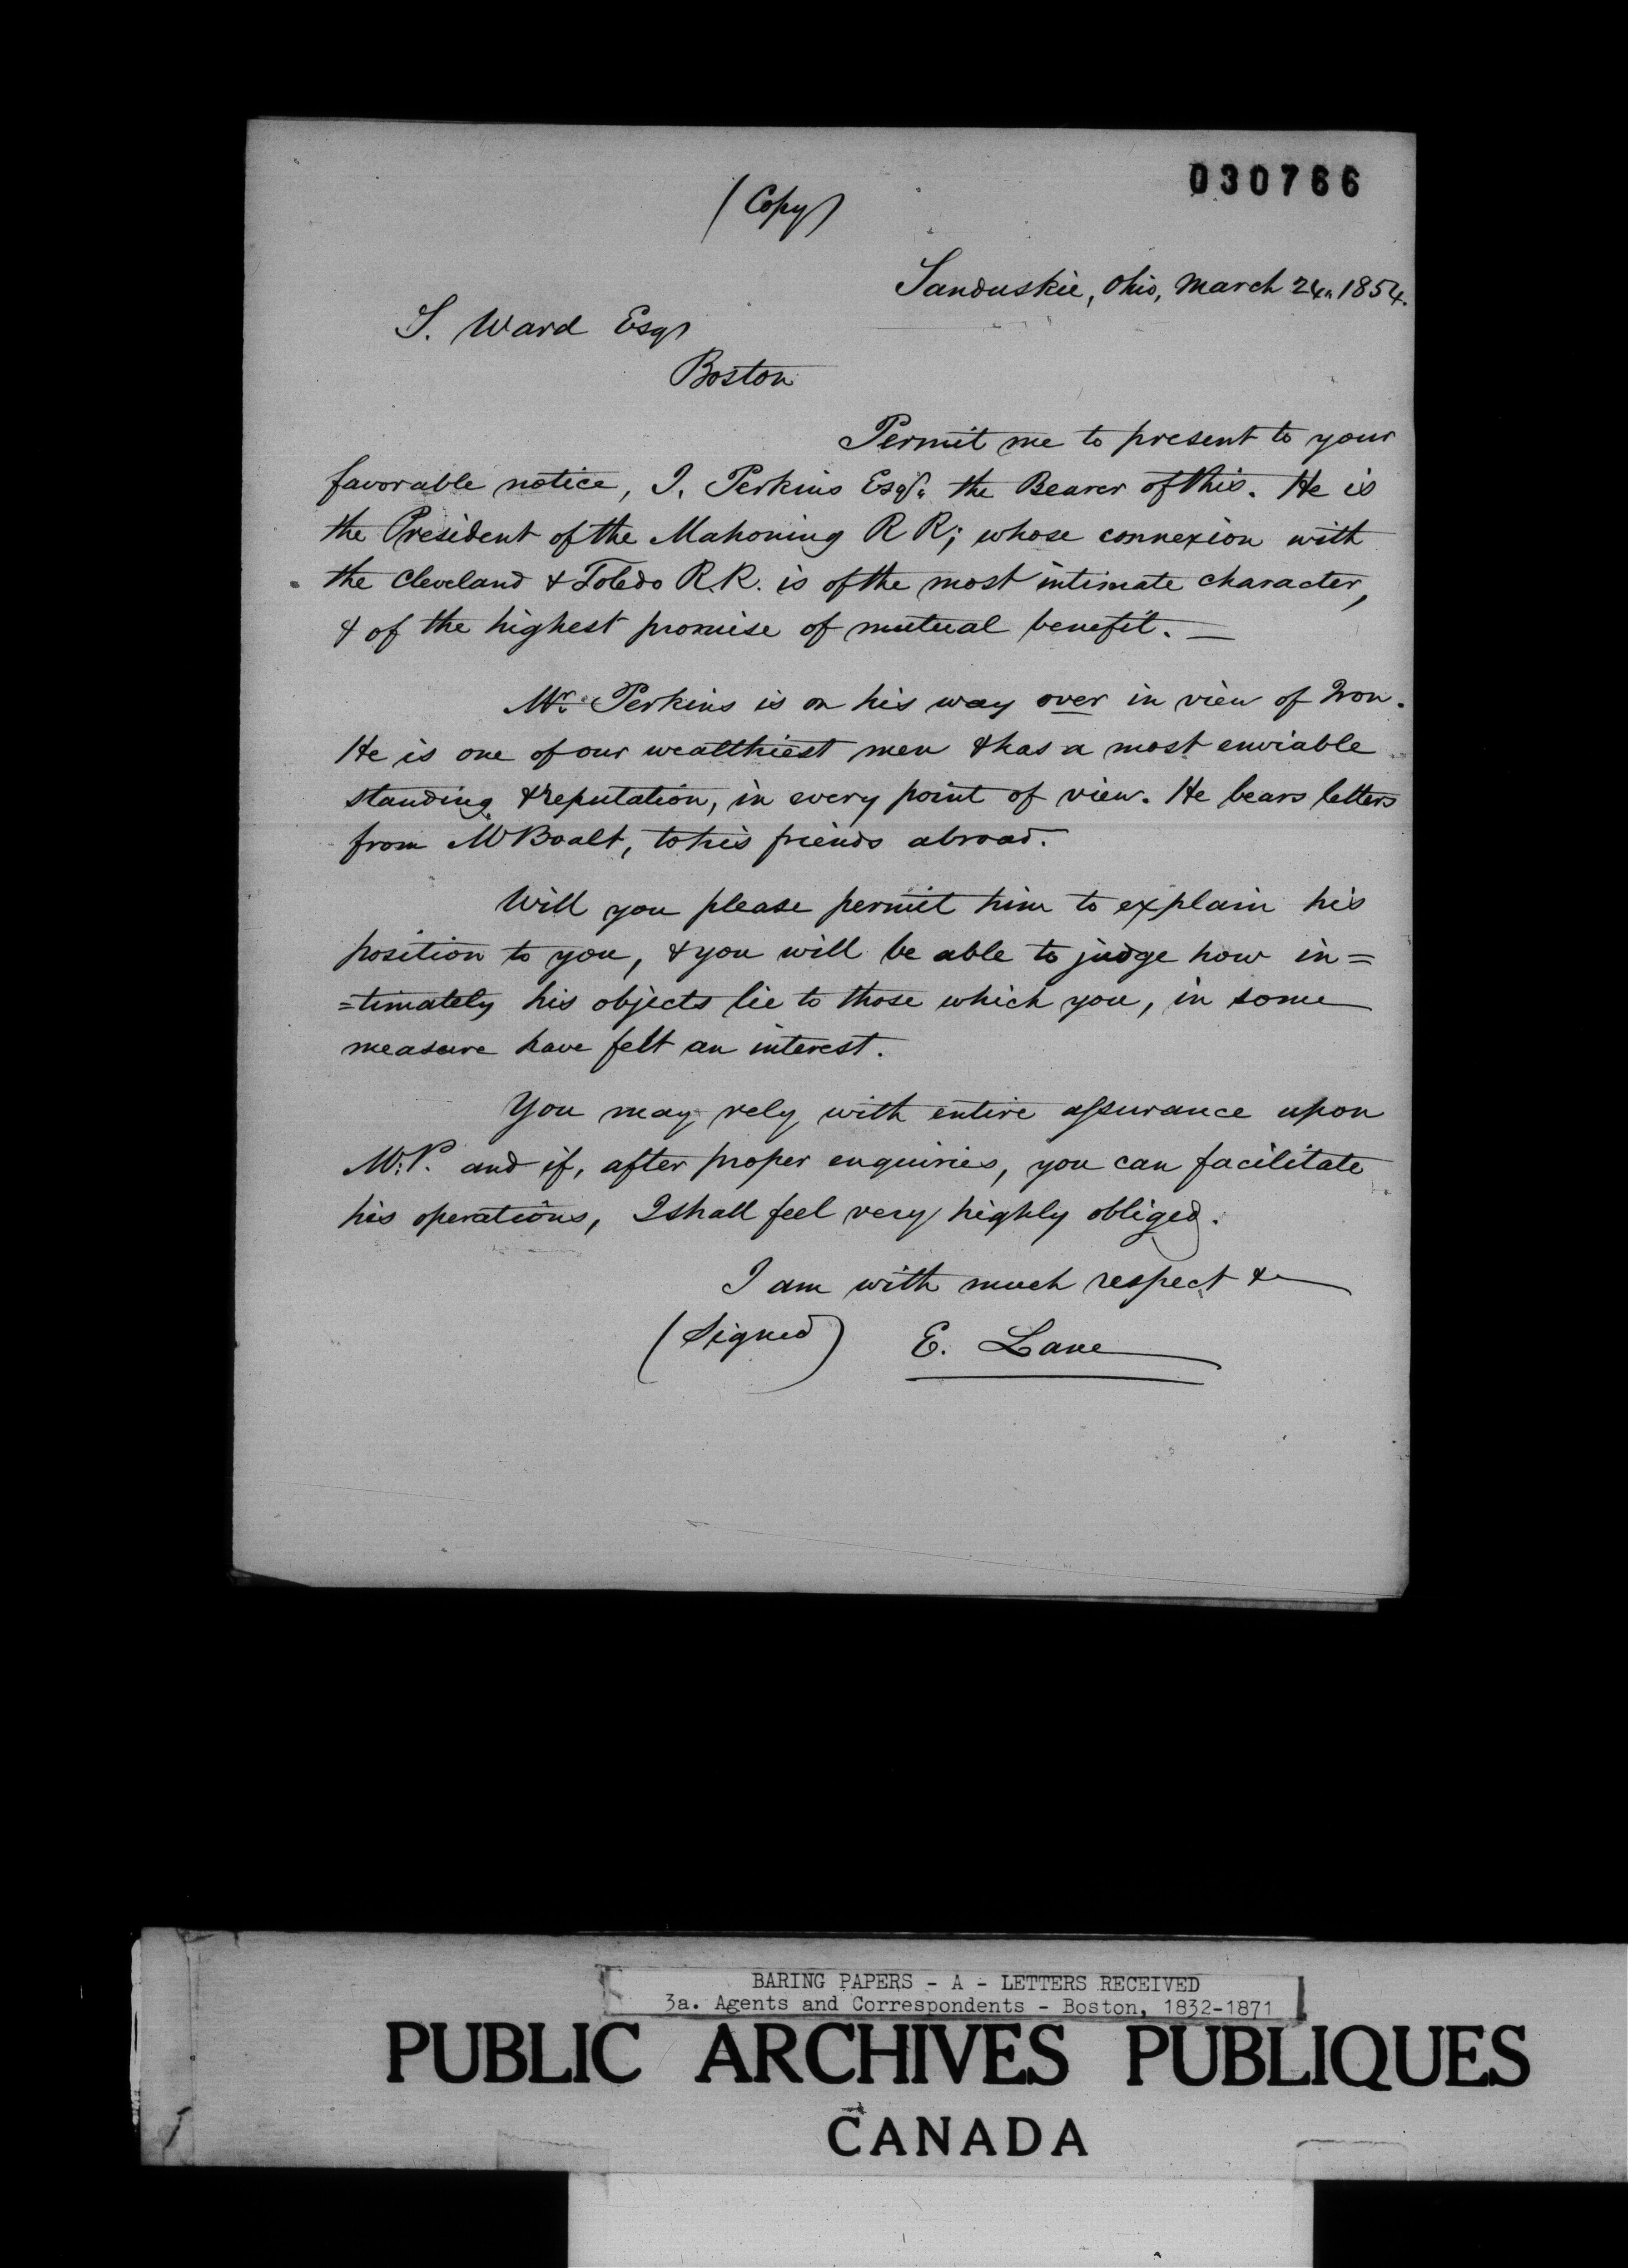 030766
(Copy)
Sanduskie, Ohio, March 24. 1854.
S. Ward Esqr
Boston
Permit me to present to your
favorable notice, J. Perkins Esqr. the Bearer of this. He is
the President of the Mahoning R R; whose connexion with
the Cleveland & Toledo R.R. is of the most intimate character,
& of the highest promise of mutual benefit. —
Mr. Perkins is on his way over in view of Iron.
He is one of our wealthiest men & has a most enviable
standing & reputation, in every point of view. He bears letters
from M Boalt, to his friends abroad.
Will you please permit him to explain his
position to you, & you will be able to judge how in=
=timately his objects lie to those which you, in some
measure have felt an interest.
You may rely with entire assurance upon
M. P. and if, after proper enquiries, you can facilitate
his operations, I shall feel very highly obliged.
I am with much respect &
(Signed) E. Lane
BARING PAPERS - A - LETTERS RECEIVED
3a. Agents and Correspondents - Boston, 1832-1871
PUBLIC ARCHIVES PUBLIQUES
CANADA